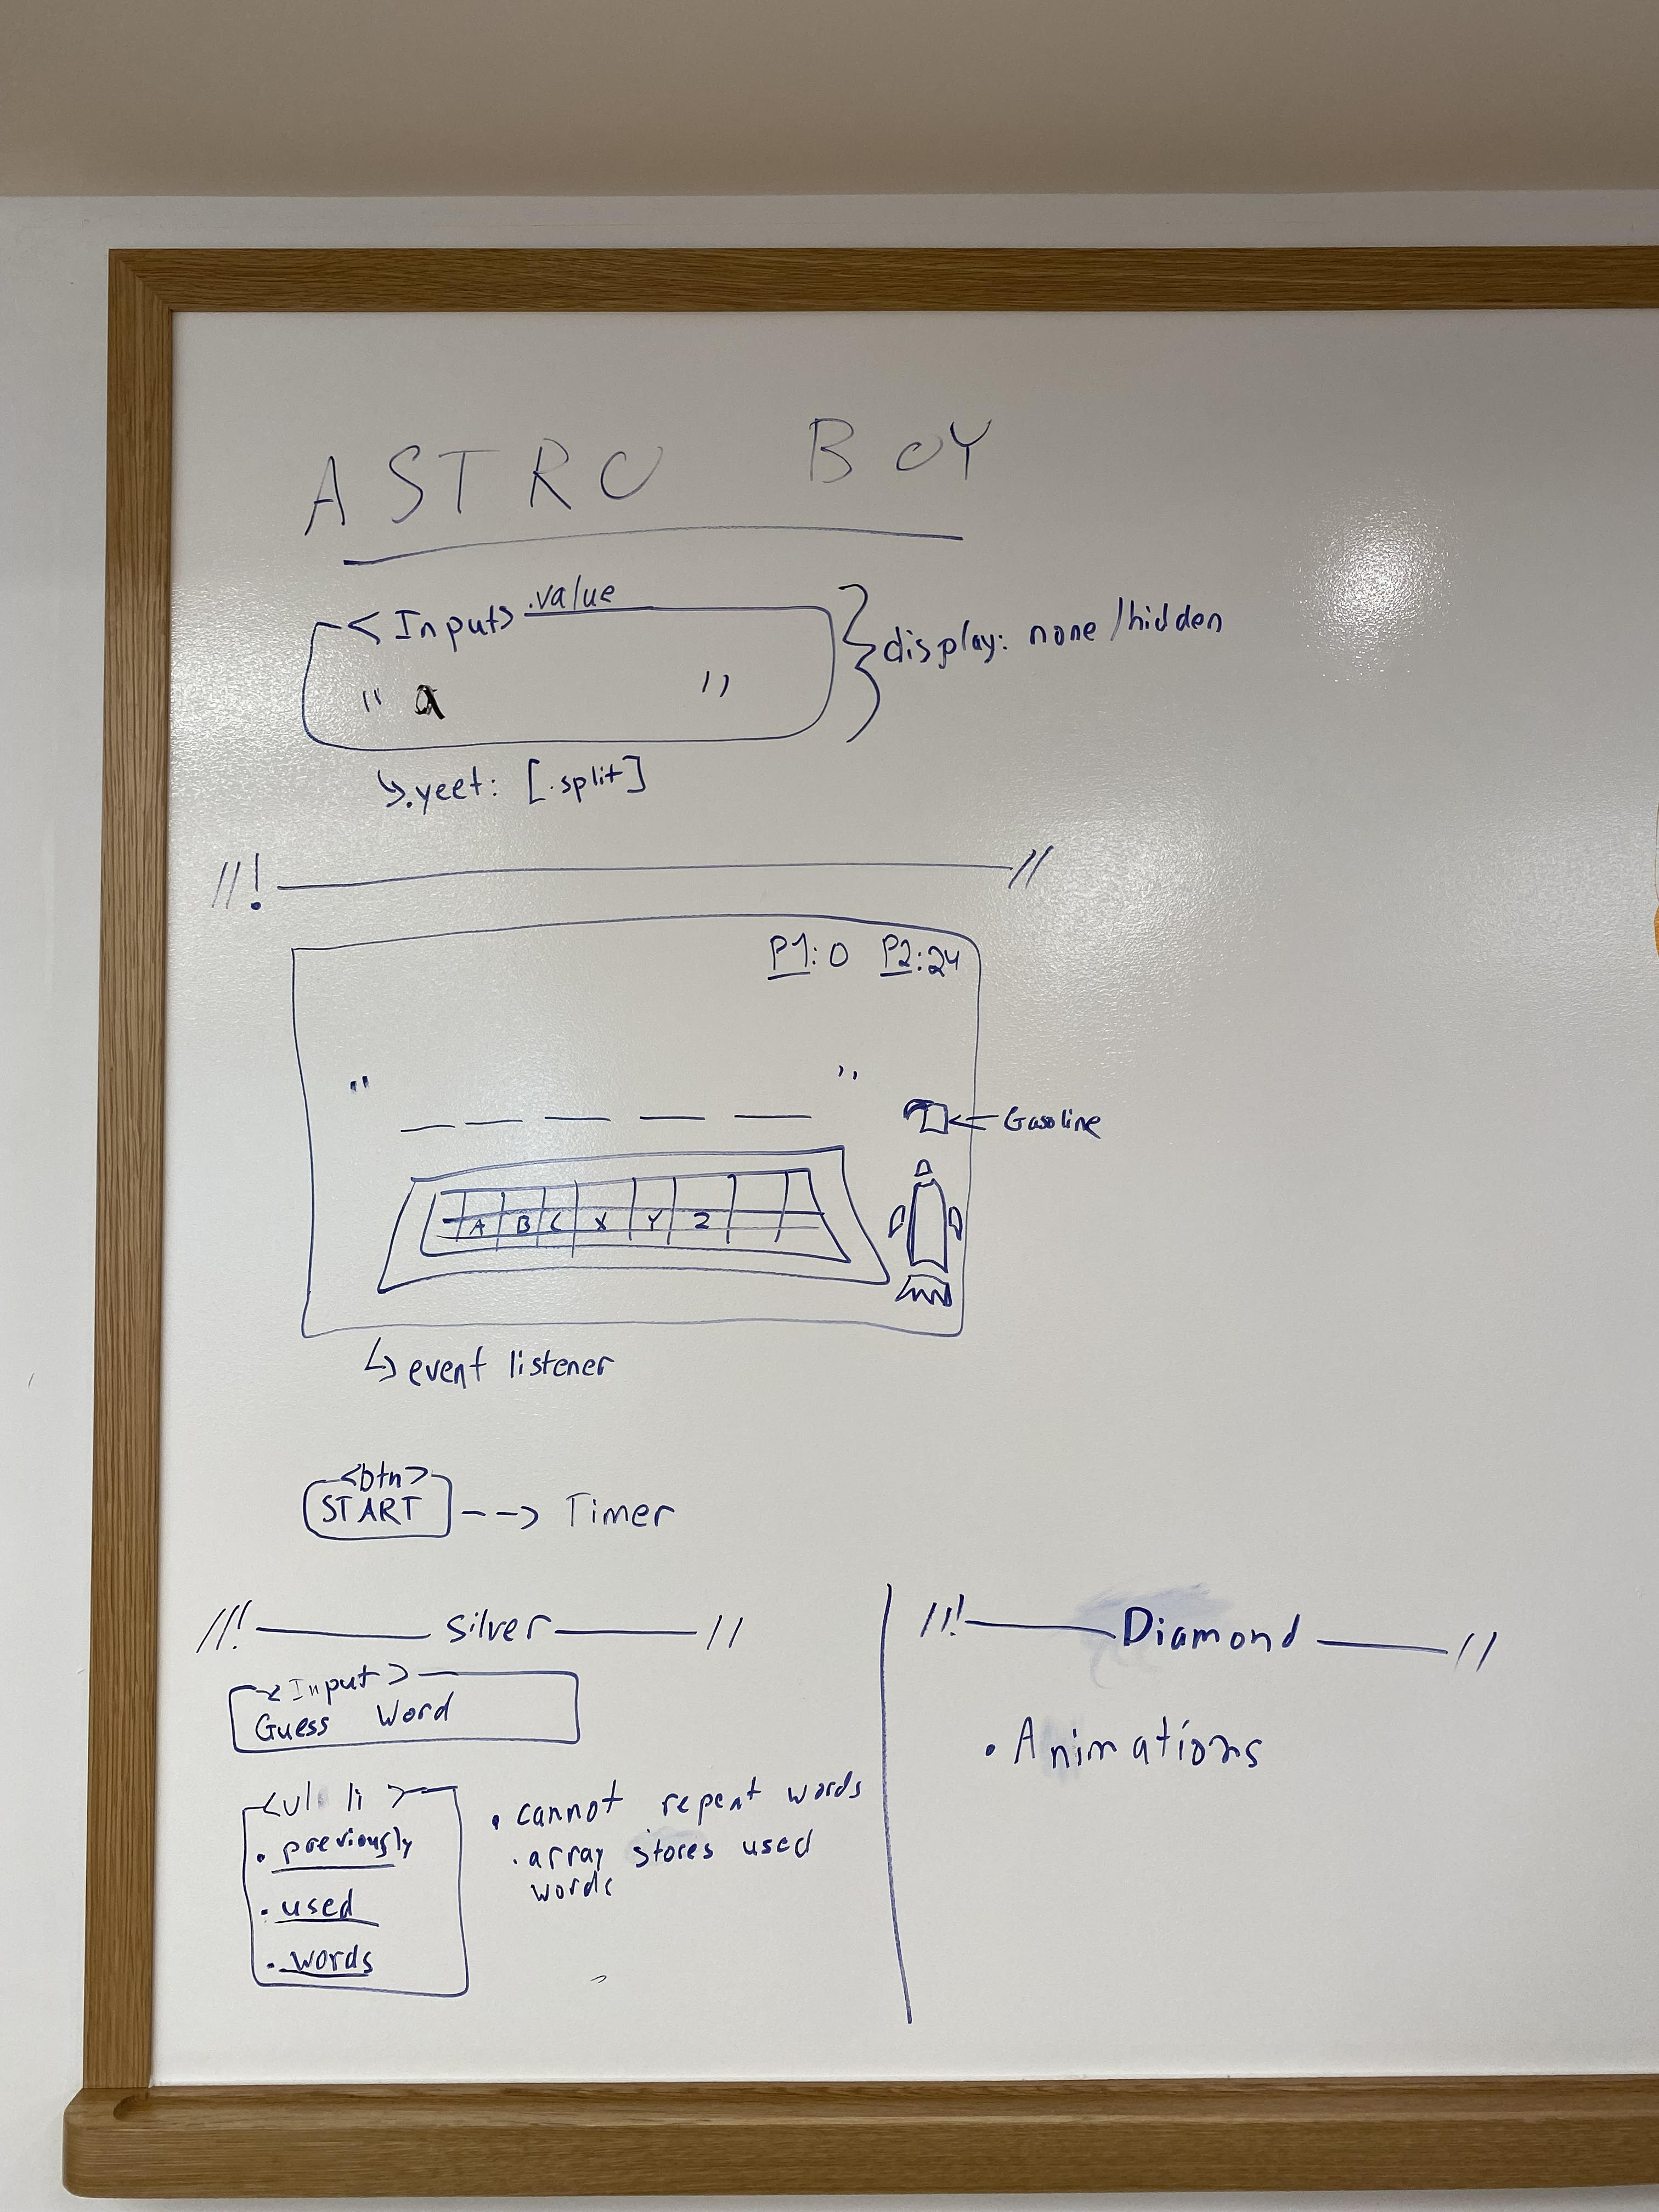 ASTRO BOY
<Input> .value
" a "
display: none /hidden
↳.yeet: [.split]
//! //
P1: 0 P2: 24
" "
Gasoline
A B C X Y Z
↳ event listener
<btn>
START --> Timer
//! silver //
<Input>
Guess Word
<ul li>
• previously
• used
• words
• cannot repeat words
. array stores used
words
//! Diamond //
• Animations